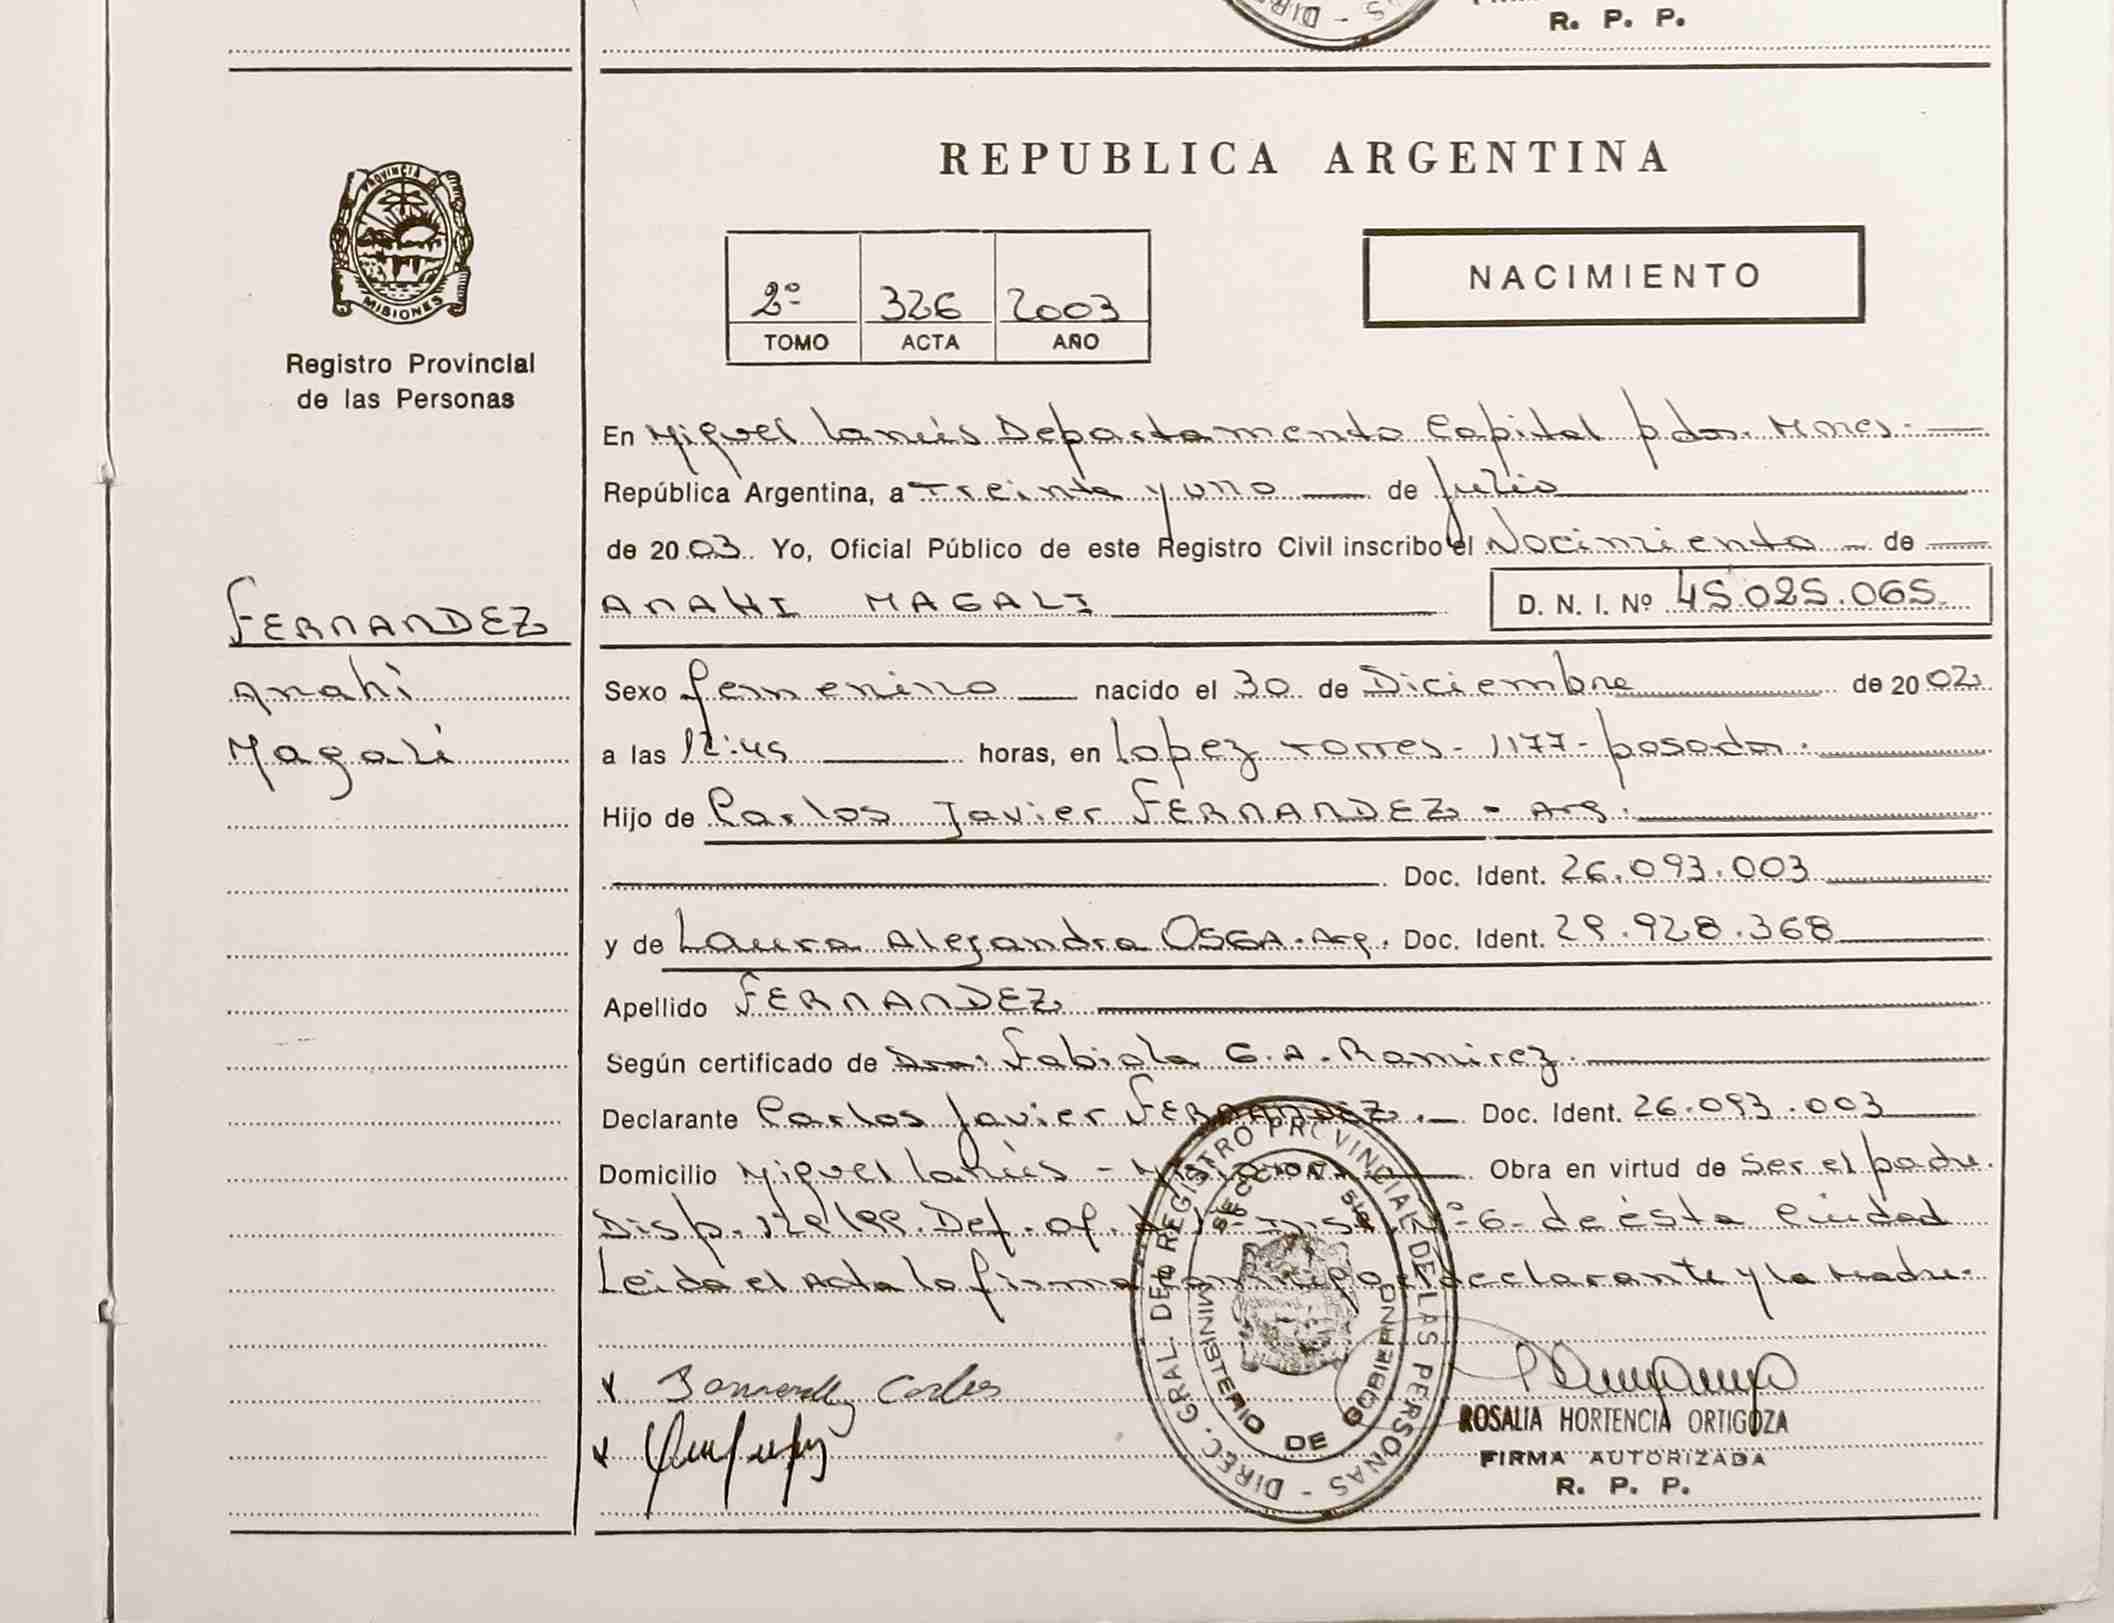 R. P. P.
PROVINCIA DE
MISIONES
Registro Provincial
de las Personas
FERNANDEZ
Anahi
Magali
REPUBLICA ARGENTINA
NACIMIENTO
2º 326 2003
TOMO ACTA AÑO
En Miguel Lanús Departamento Capital Pdas. Mnes.
República Argentina, a Treinta y uno de Julio
de 2003. Yo, Oficial Público de este Registro Civil inscribo el Nacimiento de
ANAHI MAGALI D. N. I. Nº 45.025.065.
Sexo femenino nacido el 30 de Diciembre de 2002
a las 12:45 horas, en Lopez Torres - 1177 - Posadas.
Hijo de Carlos Javier FERNANDEZ - Arg.
Doc. Ident. 26.093.003
y de Laura Alejandra OSGA. Arg. Doc. Ident. 29.928.368
Apellido FERNANDEZ
Según certificado de Dra: Fabiola G. A. Ramirez.
Declarante Carlos Javier FERNANDEZ. Doc. Ident. 26.093.003
Domicilio Miguel Lanús - Obra en virtud de Ser el padre.
Disp. 129/99. Def. of. Nº 6 - de ésta Ciudad
Leida el Acta la firma conmigo el declarante y la Madre.
DIREC. GRAL. DEL REGISTRO PROVINCIAL DE LAS PERSONAS
MINISTERIO DE GOBIERNO
ROSALIA HORTENCIA ORTIGOZA
FIRMA AUTORIZADA
R. P. P.